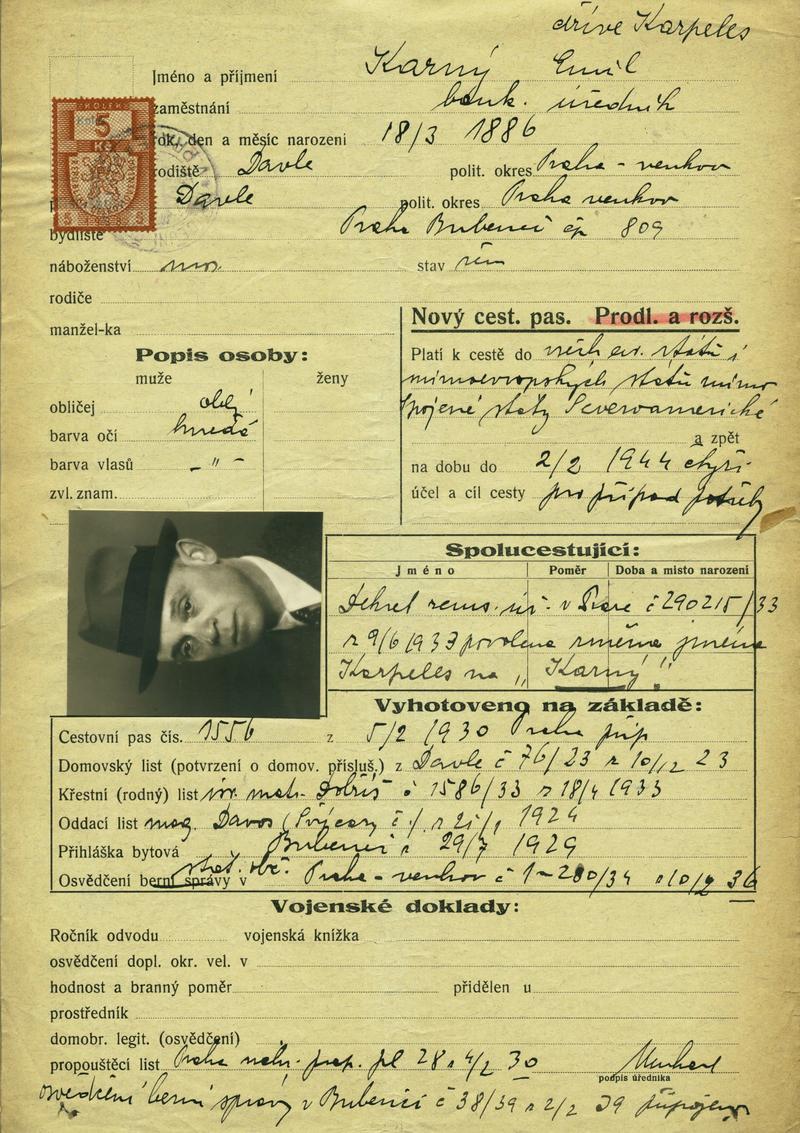 dříve Karpeles
Jméno a příjmení Karný Emil
zaměstnání bank. úředník
rok, den a měsíc narození 18/3 1886
KOLEK
5
Kč
5 5
rodiště Davle polit. okres Praha - venkov
Davle polit. okres Praha venkov
bydliště Praha Bubeneč čp 809
náboženství mos. stav žen
rodiče
manžel-ka
Nový cest. pas. Prodl. a rozš.
Popis osoby:
muže ženy
obličej obl.
barva očí hnědé
barva vlasů - " -
zvl. znam.
Platí k cestě do všech ev. států i
mimoevropských států mimo
Spojené státy Severoamerické
a zpět
na dobu do 2/2 1944 čtyři
účel a cíl cesty pro případ potřeby
Spolucestující:
Jméno Poměr Doba a místo narození
Dekret zems. úř. v Praze č 290215/33
z 9/6 1933 povolena změna jména
Karpeles na „Karný“.
Vyhotoveno na základě:
Cestovní pas čís. 1556 z 5/2 1930 Praha
Domovský list (potvrzení o domov. přísluš.) z Davle č 76/23 z 10/12 23
Křestní (rodný) list izr. matr. Dobříš č 1586/33 z 18/4 1933
Oddací list mag. Davos (Švýcary č. 1924
Přihláška bytová Bubeneč z 29/7 1929
Osvědčení berní správy v stát. obč. Praha - venkov č 1-280/34 z 10/2 36
Vojenské doklady:
Ročník odvodu vojenská knížka
osvědčení dopl. okr. vel. v
hodnost a branný poměr přidělen u
prostředník
domobr. legit. (osvědčení)
propouštěcí list Praha 28 z 4/2 30
podpis úředníka
osvědčení berní správy v Bubenči č 38/39 z 2/2 39 připojeno